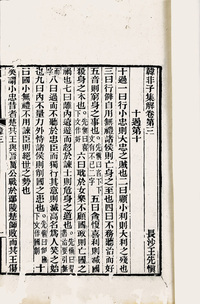 韓非子集解卷第三
長沙王先慎
十過第十
十過一曰行小忠則大忠之賊也二曰顧小利則大利之殘也
三曰行僻自用無禮諸侯則亡身之至也四曰不務聽治而好
五音則窮身之事也 五曰貪愎喜利則滅國
殺身之本也 六曰耽於女樂不顧國政則亡國之
禍也七曰離內遠遊而忽於諫士則危身之道也
八曰過而不聽於忠臣而獨行其意則滅高名為人笑之始
也九曰內不量力外恃諸侯則削國之患也 十
曰國小無禮不用諫臣則絕世之勢也
奚謂小忠昔者楚共王與晉厲公戰於鄢陵楚師敗而共王傷